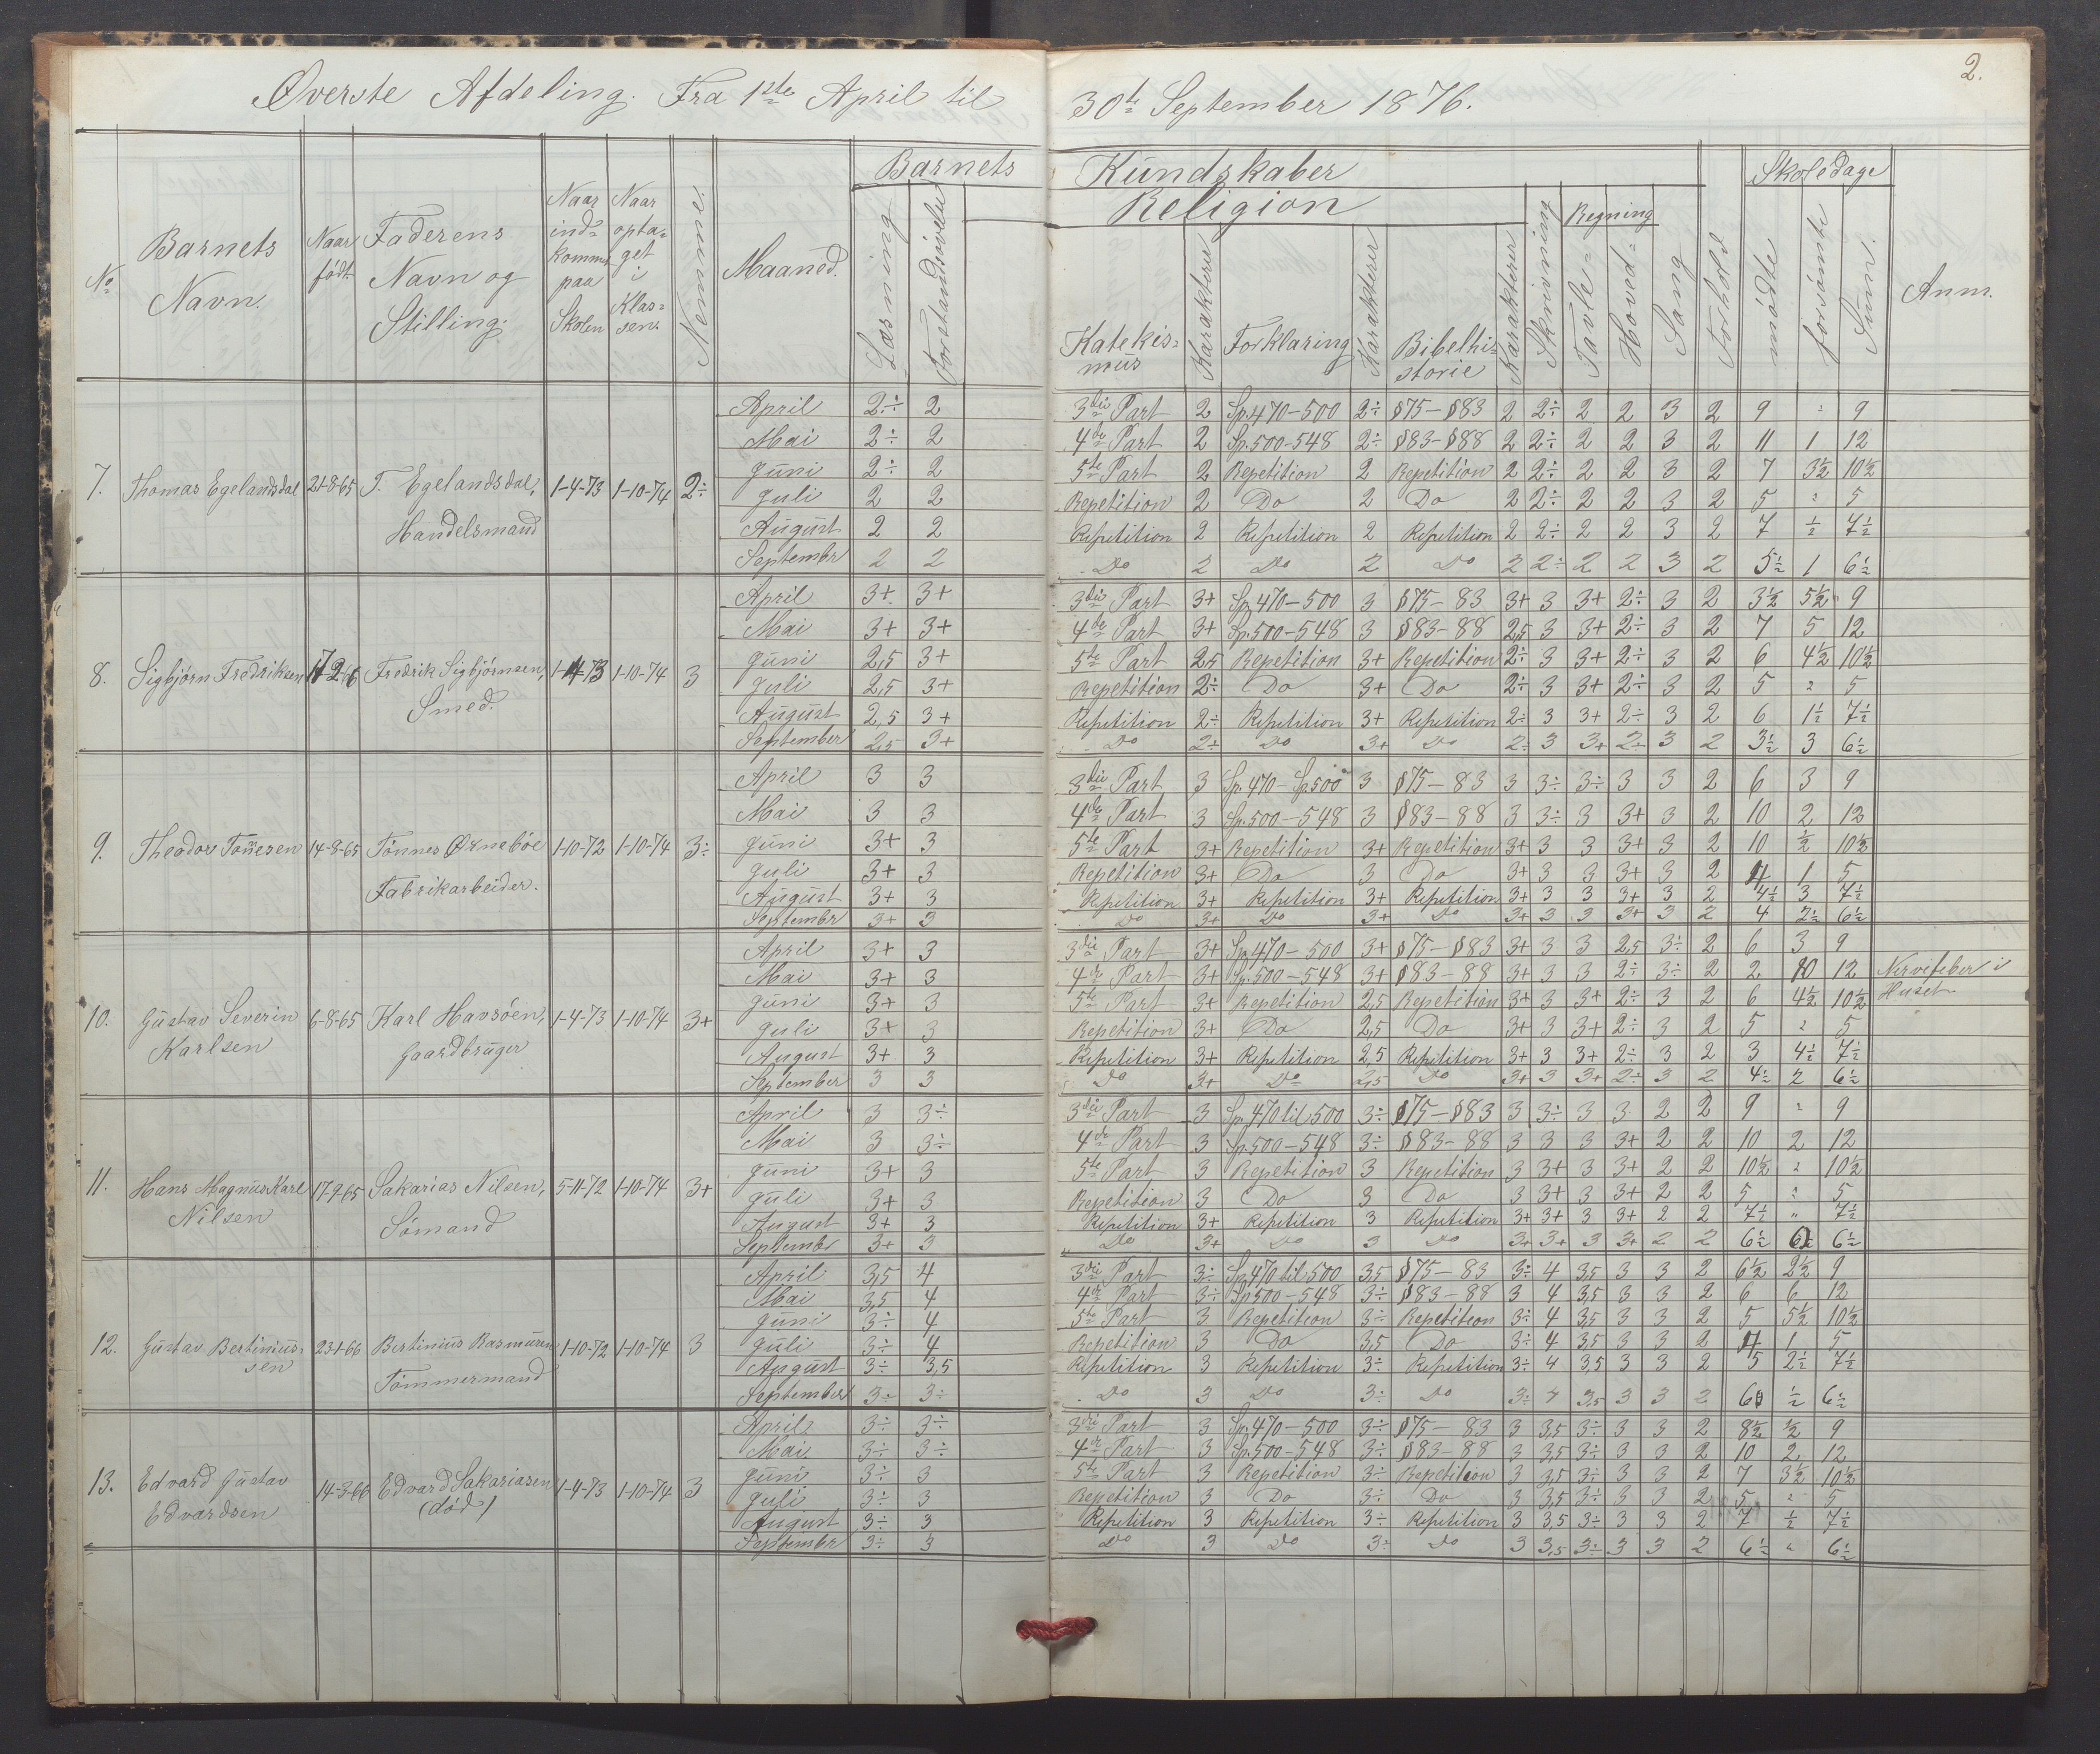 2.
Øverste Afdeling. Fra 1ste April til 30te September 1876.
No
Barnets Navn.
Naar født.
Faderens Navn og Stilling.
Naar indkommet paa Skolen
Naar optaget i Klassen.
Nemme.
Maaned.
Barnets Kundskaber
Læsning
Forstandsøvelse
Religion
Katekismus
Karakterer
Forklaring
Karakterer
Bibelhistorie
Karakterer
Skrivning
Regning
Tavle=
Hoved=
Sang
Forhold
Skoledage
mødte
forsømte
Sum.
Anm.
7. Thomas Egelandsdal 21-8-65 T. Egelandsdal, Handelsmand 1-4-73 1-10-74 2÷
April 2÷ 2 3die Part 2 Sp. 470-500 2÷ §75-§83 2 2÷ 2 2 3 2 9 " 9
Mai 2÷ 2 4de Part 2 Sp. 500-548 2÷ §83-§88 2 2÷ 2 2 3 2 11 1 12
Juni 2÷ 2 5te Part 2 Repetition 2 Repetition 2 2÷ 2 2 3 2 7 3½ 10½
Juli 2 2 Repetition 2 Do 2 Do 2 2÷ 2 2 3 2 5 " 5
August 2 2 Repetition 2 Repetition 2 Repetition 2 2÷ 2 2 3 2 7 ½ 7½
Septembr 2 2 Do 2 Do 2 Do 2 2÷ 2 2 3 2 5½ 1 6½
8. Sigbjørn Fredriksen 17-2-66 Fredrik Sigbjørnsen, Smed. 1-4-73 1-10-74 3
April 3+ 3+ 3die Part 3+ Sp. 470-500 3 §75-83 3+ 3 3+ 2÷ 3 2 3½ 5½ 9
Mai 3+ 3+ 4de Part 3+ Sp. 500-548 3 §83-88 2,5 3 3+ 2÷ 3 2 7 5 12
Juni 2,5 3+ 5te Part 2,5 Repetition 3+ Repetition 2÷ 3 3+ 2÷ 3 2 6 4½ 10½
Juli 2,5 3+ Repetition 2÷ Do 3+ Do 2÷ 3 3+ 2÷ 3 2 5 " 5
August 2,5 3+ Repetition 2÷ Repetition 3+ Repetition 2÷ 3 3+ 2÷ 3 2 6 1½ 7½
September 2,5 3+ Do 2÷ Do 3+ Do 2÷ 3 3+ 2÷ 3 2 3½ 3 6½
9. Theodor Tønnesen 14-8-65 Tønnes Øxnebøe Fabrikarbeider. 1-10-72 1-10-74 3÷
April 3 3 3die Part 3 Sp. 470-Sp 500 3 §75-83 3 3÷ 3÷ 3 3 2 6 3 9
Mai 3 3 4de Part 3 Sp. 500-548 3 §83-88 3 3÷ 3 3+ 3 2 10 2 12
Juni 3+ 3 5te Part 3+ Repetition 3+ Repetition 3+ 3 3 3+ 3 2 10 ½ 10½
Juli 3+ 3 Repetition 3+ Do 3 Do 3+ 3 3 3+ 3 2 4 1 5
August 3+ 3 Repetition 3+ Repetition 3+ Repetition 3+ 3 3 3+ 3 2 4½ 3 7½
Septembr 3+ 3 Do 3+ Do 3+ Do 3+ 3 3 3+ 3 2 4 2½ 6½
10. Gustav Severin Karlsen 6-8-65 Karl Havsøen, Gaardbruger 1-4-73 1-10-74 3+
April 3+ 3 3die Part 3+ Sp. 470-500 3+ §75-§83 3+ 3 3 2,5 3÷ 2 6 3 9
Mai 3+ 3 4de Part 3+ Sp. 500-548 3+ §83-88 3+ 3 3 2÷ 3÷ 2 2 10 12 Nervefeber i Huset
Juni 3+ 3 5te Part 3+ Repetition 2,5 Repetition 3+ 3 3+ 2÷ 3 2 6 4½ 10½
Juli 3+ 3 Repetition 3+ Do 2,5 Do 3+ 3 3+ 2÷ 3 2 5 " 5
August 3+ 3 Repetition 3+ Repetition 2,5 Repetition 3+ 3 3+ 2÷ 3 2 3 4½ 7½
September 3 3 Do 3+ Do 2,5 Do 3+ 3 3+ 2÷ 3 2 4½ 2 6½
11. Hans Magnus Karl Nilsen 17-9-65 Sakarias Nilsen, Sømand 5-11-72 1-10-74 3+
April 3 3÷ 3die Part 3 Sp. 470 til 500 3÷ §75-§83 3 3÷ 3 3 2 2 9 " 9
Mai 3 3÷ 4de Part 3 Sp. 500-548 3÷ §83-88 3 3 3 3+ 2 2 10 2 12
Juni 3+ 3 5te Part 3 Repetition 3 Repetition 3 3+ 3 3+ 2 2 10½ " 10½
Juli 3+ 3 Repetition 3 Do 3 Do 3 3+ 3 3+ 2 2 5 " 5
August 3+ 3 Repetition 3+ Repetition 3 Repetition 3+ 3+ 3 3+ 2 2 7½ " 7½
Septembr 3+ 3 Do 3+ Do 3 Do 3+ 3+ 3 3+ 2 2 6½ 6½
12. Gustav Bertiniussen 23-1-66 Bertinius Rasmusen Tømmermand 1-10-72 1-10-74 3
April 3,5 4 3die Part 3÷ Sp. 470 til 500 3,5 §75-83 3÷ 4 3,5 3 3 2 6½ 2½ 9
Mai 3,5 4 4de Part 3÷ Sp 500-548 3÷ §83-88 3 4 3,5 3 3 2 6 6 12
Juni 3÷ 4 5te Part 3 Repetition 3÷ Repetition 3÷ 4 3,5 3 3 2 5 5½ 10½
Juli 3÷ 4 Repetition 3 Do 3,5 Do 3÷ 4 3,5 3 3 2 4 1 5
August 3÷ 3,5 Repetition 3 Repetition 3÷ Repetition 3÷ 4 3,5 3 3 2 5 2½ 7½
September 3÷ 3÷ Do 3 Do 3÷ Do 3÷ 4 3,5 3 3 2 6 ½ 6½
13. Edvard Gustav Edvardsen 14-3-66 Edvard Sakariasen (død) 1-4-73 1-10-74 3
April 3÷ 3÷ 3die Part 3 Sp. 470-500 3÷ §75-83 3 3,5 3÷ 3 3 2 8½ ½ 9
Mai 3÷ 3÷ 4de Part 3 Sp. 500-548 3÷ §83-88 3 3,5 3÷ 3 3 2 10 2 12
Juni 3÷ 3 5te Part 3 Repetition 3÷ Repetition 3 3,5 3÷ 3 3 2 7 3½ 10½
Juli 3÷ 3 Repetition 3 Do 3÷ Do 3 3,5 3÷ 3 3 2 5 " 5
August 3÷ 3 Repetition 3 Repetition 3÷ Repetition 3 3,5 3÷ 3 3 2 7 ½ 7½
Septembr 3÷ 3 Do 3 Do 3÷ Do 3 3,5 3÷ 3 3 2 6½ " 6½